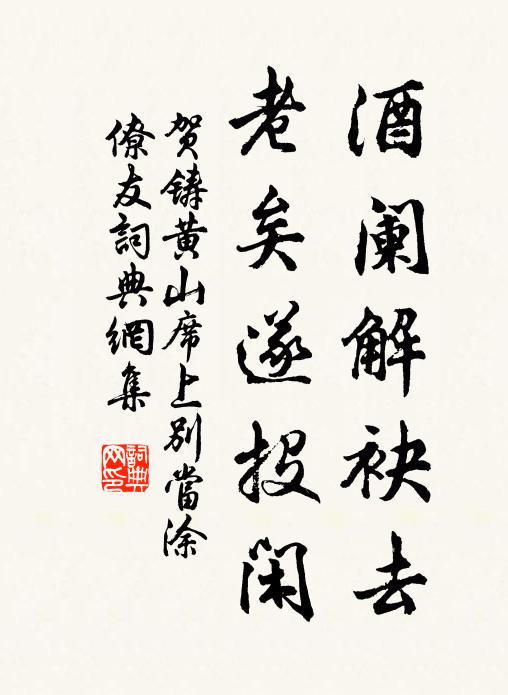 酒阑解袂去
老矣遂投闲
贺铸黄山席上别當涂
僚友詞典網集
詞典网印